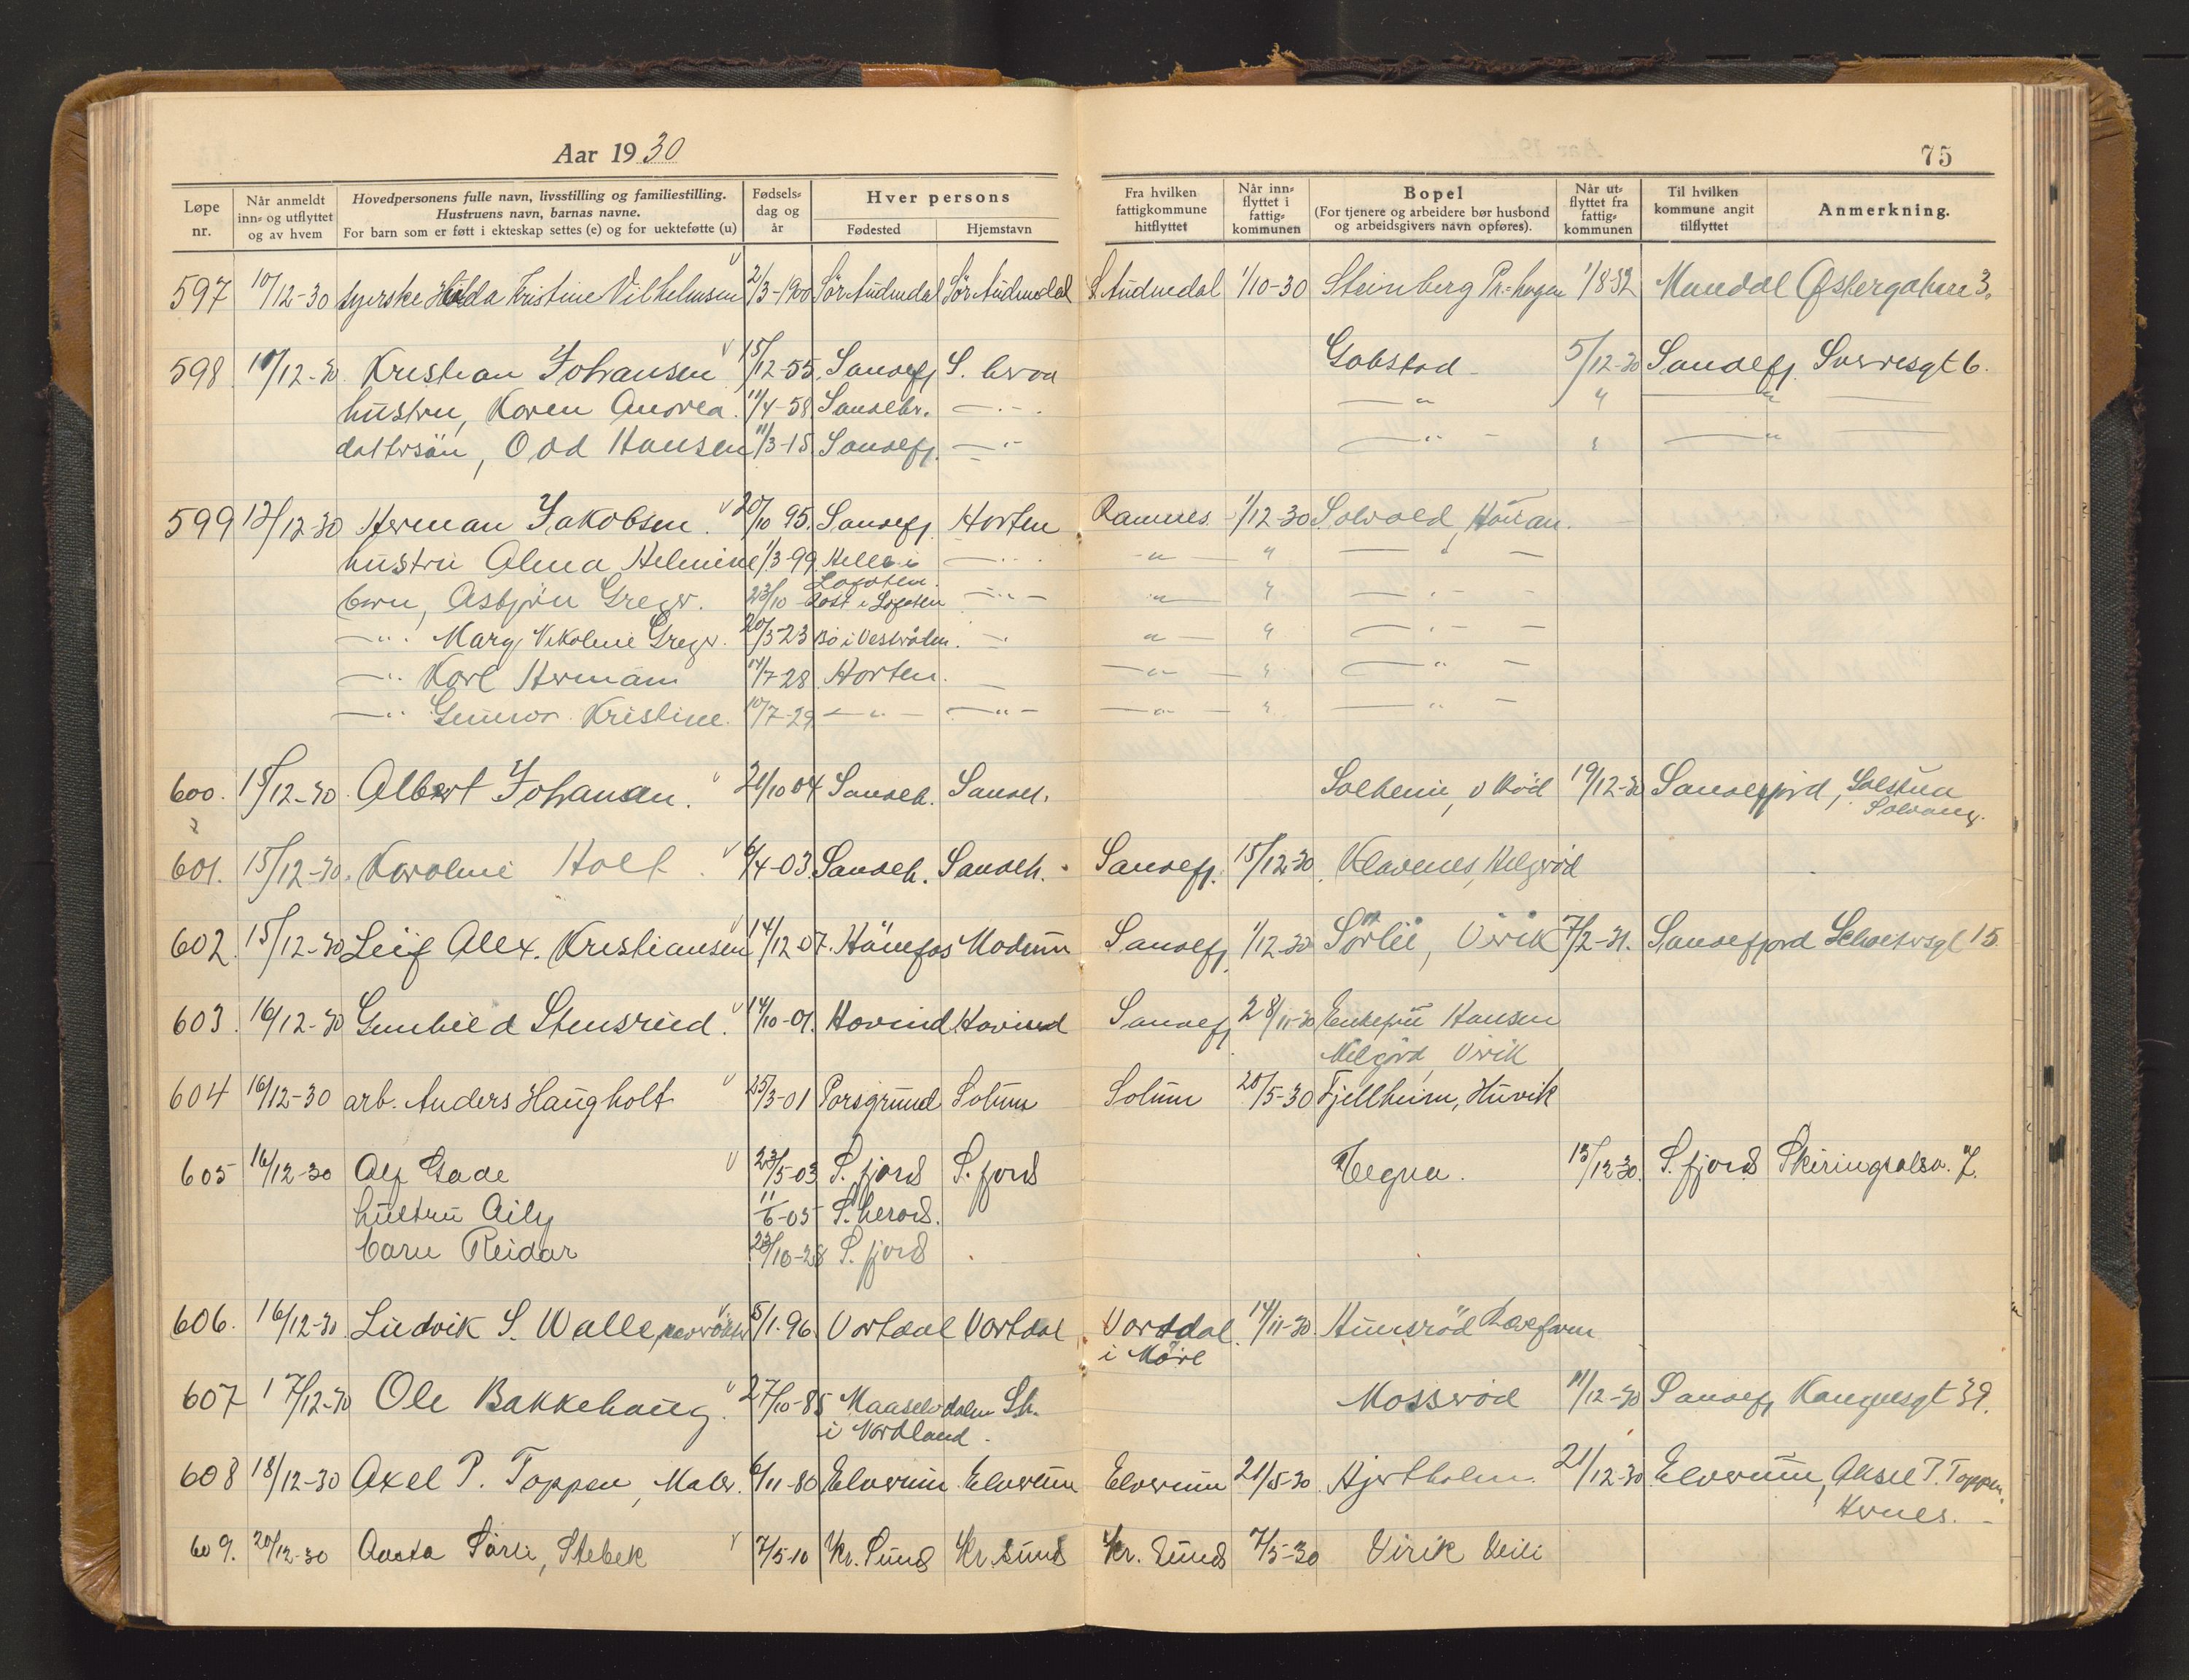 Aar 1930
75
Løpe nr.
Når anmeldt inn- og utflyttet og av hvem
Hovedpersonens fulle navn, livsstilling og familiestilling.
Hustruens navn, barnas navne.
For barn som er født i ekteskap settes (e) og for uekteføtte (u)
Fødsels-dag og år
Hver persons
Fødested
Hjemstavn
Fra hvilken fattigkommune hitflyttet
Når inn-flyttet i fattig-kommunen
Bopel
(For tjenere og arbeidere bør husbond og arbeidsgivers navn opføres).
Når ut-flyttet fra fattig-kommunen
Til hvilken kommune angit tilflyttet
Anmerkning.
597 10/12-30 syerske Hilda Kristine Vilhelmsen 2/3-1900 Sør Audnedal Sør Audnedal S. Audnedal 1/10-30 Steinberg Pr.-hagen 1/8-32 Mandal
598 10/12-30 Kristian Johansen 15/12-55 Sandefj. Gobstad 5/12-30 Sandefj. Sverresgt 6.
hustru, Karen Andrea 11/4-58 Sandehr. — " —
dattersön, Odd Hansen 11/3-15 Sandefj. — " —
599 12/12-30 Herman Jakobsen 20/10 95 Sandefj. Horten Ramnes 1/12-30 Solvold,
hustru Alma Helmine 1/3-99 Helle i Lofoten
barn, Asbjörn Greger. 23/10 Röst i Lofoten
— " — Marg. Nikoline Greger. 20/3-23 Bö i Vesterålen
— " — Karl Herman 14/7-28 Horten
— " — Gunvor Kristine 10/7-29 — " —
600. 15/12-30 Albert Johansen 21/10 04 Sandeh. Sandeh. Solheim, v Röd 19/12-30 Sandefjord, Solstua Solvang.
601. 15/12-30 Karoline Holt 6/4-03 Sandeh. Sandeh. Sandefj. 15/12-30 Klavenes, Helgeröd
602. 15/12-30 Leif Alex. Kristiansen 14/12 07. Hönefos Modum Sandefj. 1/12-30 Sörlie, Virik 7/2-31. Sandefjord 15
603. 16/12-30 Gunhild Stensrud 14/10-01. Hovind Hovind Sandefj. 28/11-30 Enkefru Hansen
Virik
604 16/12-30 arb. Anders Haugholt 25/3-01 Porsgrund Solum Solum 20/5-30 Fjellheim, Huvik
605 16/12-30 Alf Gade 23/5-03 S. fjord S. fjord Tegna. 13/12-30. S. fjord Skiringsalsv. 7.
hustru Aily 11/6-05 S. herad.
barn Reidar 23/10-28 S. fjord
606. 16/12-30 Ludvik S. Walle, 5/1-96 Vartdal Vartdal Vartdal i Möre 14/11-30 Hunsröd Revefarm
607 17/12-30 Ole Bakkehaug 27/10-85 Maaselvdalen i Nordland Sh. Mosseröd 11/12-30 Sandefj. 39.
608 18/12-30 Axel P. Toppen, Maler. 6/11-80 Elverum Elverum Elverum 21/5-30 Hjertholm 21/12-30 Elverum, Aksel P. Toppen, Hernes.
609. 20/12-30 Aasta Sørli, Stebek 7/5-10 Kr. Sund Kr. sund Kr. Sund 7/5-30 Virik